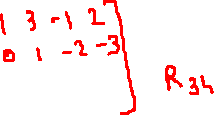 1 3 -1 2
0 1 -2 -3
R34